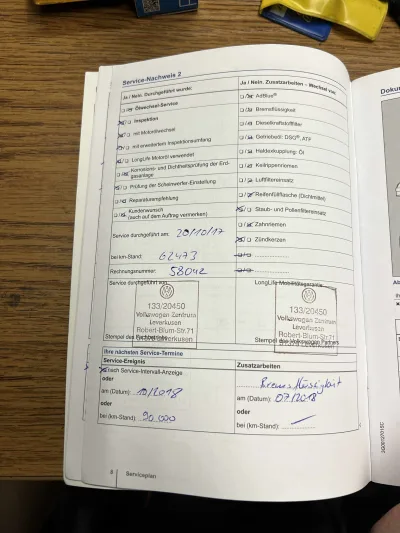 Service-Nachweis 2
Ja / Nein. Durchgeführt wurde:
Ölwechsel-Service
Inspektion
mit Motorölwechsel
mit erweitertem Inspektionsumfang
LongLife Motoröl verwendet
Korrosions- und Dichtheitsprüfung der Erd-
gasanlage
Prüfung der Scheinwerfer-Einstellung
Reparaturempfehlung
Kundenwunsch
(auch auf dem Auftrag vermerken)
Service durchgeführt am: 20/10/17
bei km-Stand: 62473
Rechnungsnummer: 58042
Service durchgeführt von:
133/20450
Volkswagen Zentrum
Leverkusen
Robert-Blum-Str.71
Stempel des Fachbetriebs
Ja / Nein. Zusatzarbeiten – Wechsel von:
AdBlue®
Bremsflüssigkeit
Dieselkraftstofffilter
Getriebeöl: DSG®, ATF
Haldexkupplung: Öl
Keilrippenriemen
Luftfiltereinsatz
Reifenfüllflasche (Dichtmittel)
Staub- und Pollenfiltereinsatz
Zahnriemen
Zündkerzen
LongLife Mobilitätsgarantie
133/20450
Volkswagen Zentrum
Leverkusen
Robert-Blum-Str.71
Stempel des Volkswagen Partners
Ihre nächsten Service-Termine
Service-Ereignis
nach Service-Intervall-Anzeige
oder
am (Datum): 10/2018
oder
bei (km-Stand): 90.000
Zusatzarbeiten
Bremsflüssigkeit
am (Datum): 07/2018
oder
bei (km-Stand):
8 Serviceplan
Doku